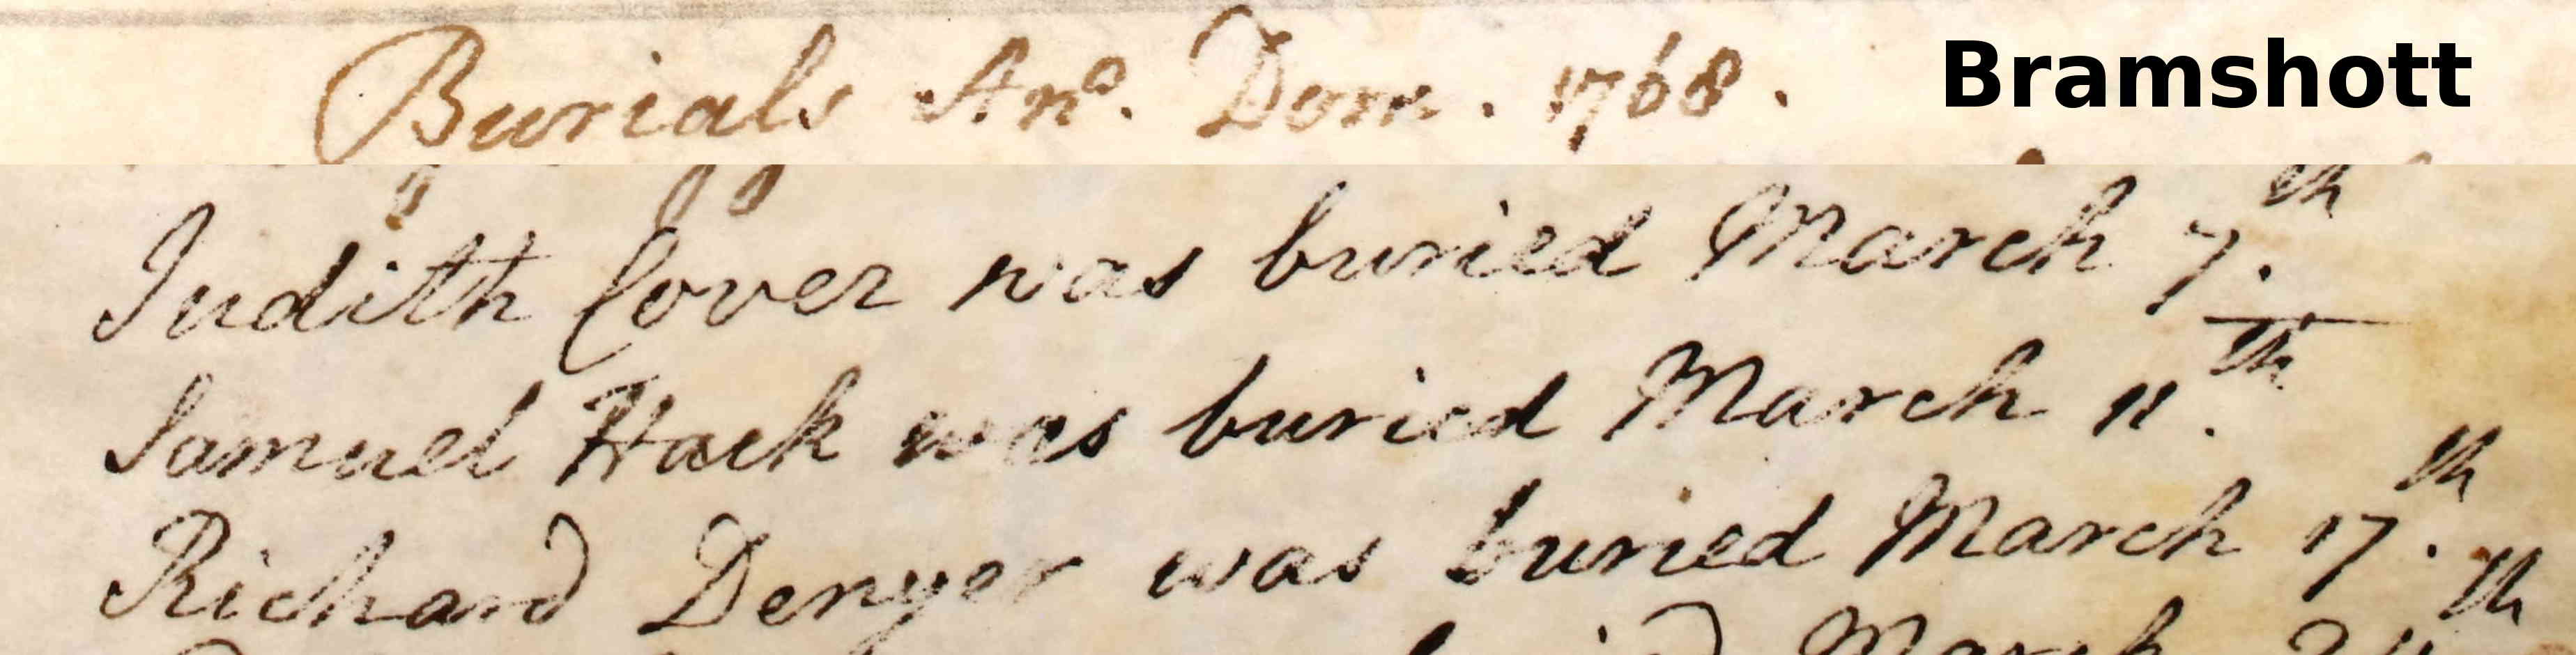 Burials Ano. Dom. 1768.
Bramshott
Judith Cover was buried March 7.th
Samuel Hack was buried March 11.th
Richard Denyer was buried March 17.th
March 24th